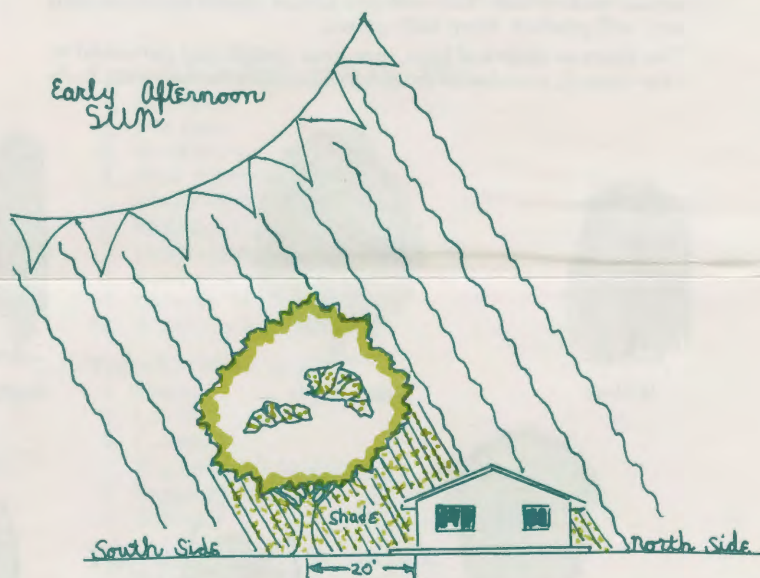 Early Afternoon
SUN
Shade
South Side
North Side
20'